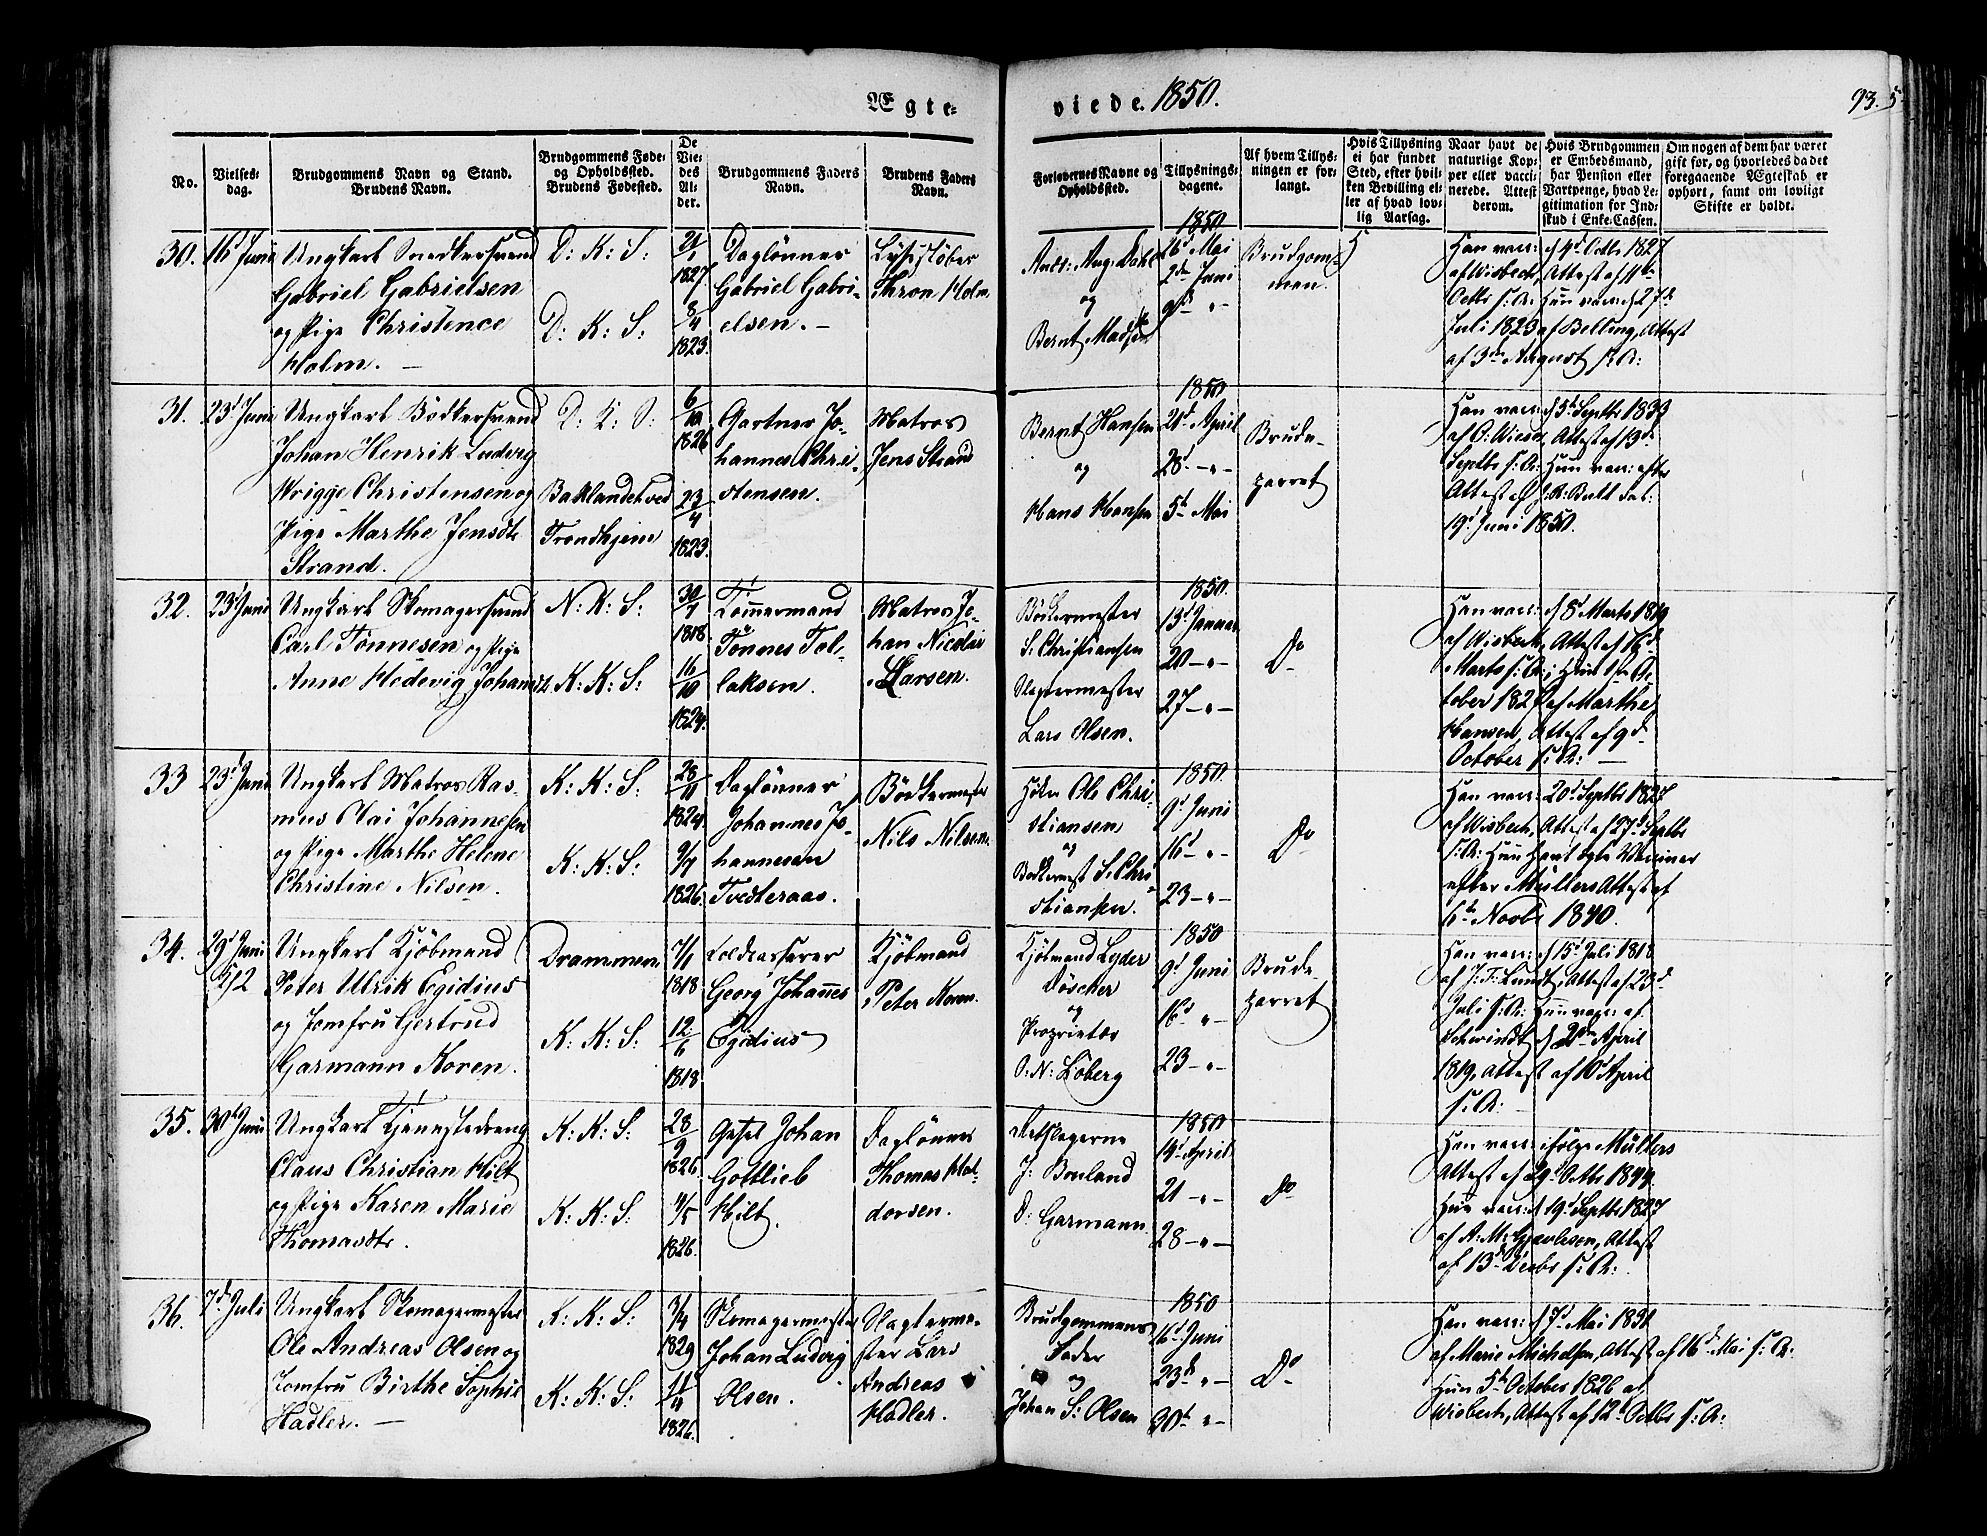 Ægte=
viede. 1850.
93.
No.
Vielses=
dag.
Brudgommens Navn og Stand.
Brudens Navn.
Brudgommens Føde=
og Opholdssted.
Brudens Fødested.
De
Vie=
des
Al=
der.
Brudgommens Faders
Navn.
Brudens Faders
Navn.
Forlovernes Navne og
Opholdssted.
Tillysnings=
dagene.
Af hvem Tillys=
ningen er for=
langt.
Hvis Tillysning
ei har fundet
Sted, efter hvil=
ken Bevilling el=
ler af hvad lov=
lig Aarsag.
Naar havt de
naturlige Kop=
per eller vacci=
nerede. Attest
derom.
Hvis Brudgommen
er Embedsmand,
har Pension eller
Vartpenge, hvad Le=
gitimation for Ind=
skud i Enke=Cassen.
Om nogen af dem har været
gift før, og hvorledes da det
foregaaende Ægteskab er
ophørt, samt om lovligt
Skifte er holdt.
30.
16d Juni
Ungkarl Snedkersvend
Gabriel Gabrielsen
og Pige Christence
Holm. —
D: K: S:
D: K: S:
21/1
1827
8/4
1823.
Daglønner
Gabriel Gabri-
elsen. —
Thron Holm
Ands: Aug. Dahl
og
Bernt Madsen
1850
26d Mai
2den Juni
9d — " —
Brudgom-
men.
Han vacc: d 4d Octbr 1827
af Wisbech, Attest af 11te
Octbr s: A: Hun vacc: d 27de
Juli 1823 af Belling, Attest
af 3die August s: A:
31.
23d Juni
Ungkarl Bødkersvend
Johan Henrik Ludvig
Wrigge Christensen og
Pige Marthe Jensdtr
Strand.
D: K: S:
Baklandet ved
Trondhjem
6/10
1826
23/4
1823.
Gartner Jo-
hannes Chri-
stensen.
Matros
Jens Strand
Bernt Hansen
og
Hans Hansen
1850
21d April
28d — " —
5te Mai
Brude-
parret
Han vacc: d 5te Septbr 1833
af O: Wiese, Attest af 13de
Septbr s: A: Hun vacc: efter
Attest af J: R: Bull dat:
19d Juni 1850.
32.
23d Juni
Ungkarl Skomagersvend
Carl Tønnesen og Pige
Anne Hedevig Johansdtr
N: K: S:
K: K: S:
30/7
1818.
16/10
1824.
Tømmermand
Tønnes Tol-
laksen.
Matros Jo-
han Nicolai
Larsen.
Bødkermester
S: Christiansen
Slagtermester
Lars Olsen.
1850.
13d Januar
20 — " —
27 — " —
Do
Han vacc: d 8d Marts 1819
af Wisbech, Attest af 16d
Marts s: A:; Hun 1ste Oc-
tober 1827 af Marthe
Hansen, Attest af 9d
October s: A: —
33
23d Juni
Ungkarl Matros Ras-
mus Olai Johannesen
og Pige Marthe Helene
Christine Nilsen.
K: K: S:
K: K: S:
28/11
1824
9/7
1826.
Daglønner
Johannes Jo-
hannesen
Tvedteraas.
Bødkermester
Nils Nilsen.
Ole Chri-
stiansen
og
Bødkermest S: Chri-
stiansen.
1850.
9d Juni
16d — " —
23 — " —
Do
Han vacc: 20d Septbr 1827
af Wisbech, Attest af 27d Septbr
s: A: Hun havt ægte Vacciner
efter Müllers Attest af
6te Novbr 1840.
34.
29d Juni
Ungkarl Kjøbmand
Peter Ulrik Egidius
og Jomfru Gertrud
Garmann Koren.
Drammen
K: K: S:
7/1
1818
12/6
1818
Toldkasserer
Georg Johannes
Egidius
Kjøbmand
Peter Koren.
Kjøbmand Lyder
Döscher
og
Proprietær
O: N: Løberg
1850
9d Juni
16d — " —
23 — " —
Brude-
parret
Han vacc: d 15d Juli 1818
af J: T: Lundt, Attest af 23d
Juli s: A: Hun vacc: af
Schwindt d 2den April
1819, Attest af 10d April
s: A: —
35.
30d Juni
Ungkarl Tjenestedreng
Claus Christian Hilt
og Pige Karen Marie
Thomasdtr.
K: K: S:
K: K: S:
28/9
1826
4/5
1826.
Johan
Gottlieb
Hilt.
Daglønner
Thomas Hal-
dorsen.
J: Bouland
D: Garmann
1850
14d April
21 — " —
28 — " —
Do
Han vacc: ifølge Müllers
Attest af 29d Octbr 1844.
Hun vacc: d 19d Septbr 1827
Attest
af 13d Decbr s: A:
36.
7d Juli
Ungkarl Skomagermester
Ole Andreas Olsen og
Jomfru Birthe Sophie
Hadler. —
K: K: S:
K: K: S:
3/4
1829
11/4
1826.
Skomagermester
Johan Ludvig
Olsen.
Slagterme-
ster Lars
Andreas
Hadler.
Brudgommens
Fader
og
Johan S: Olsen
1850
16d Juni
23de — " —
30te — " —
Do
Han vacc: d 7d Mai 1831
af Marie Michelsen, Attest af 16d Mai s: A:
Hun 5te October 1826 af
Wisbech, Attest af 12te Octbr s: A: